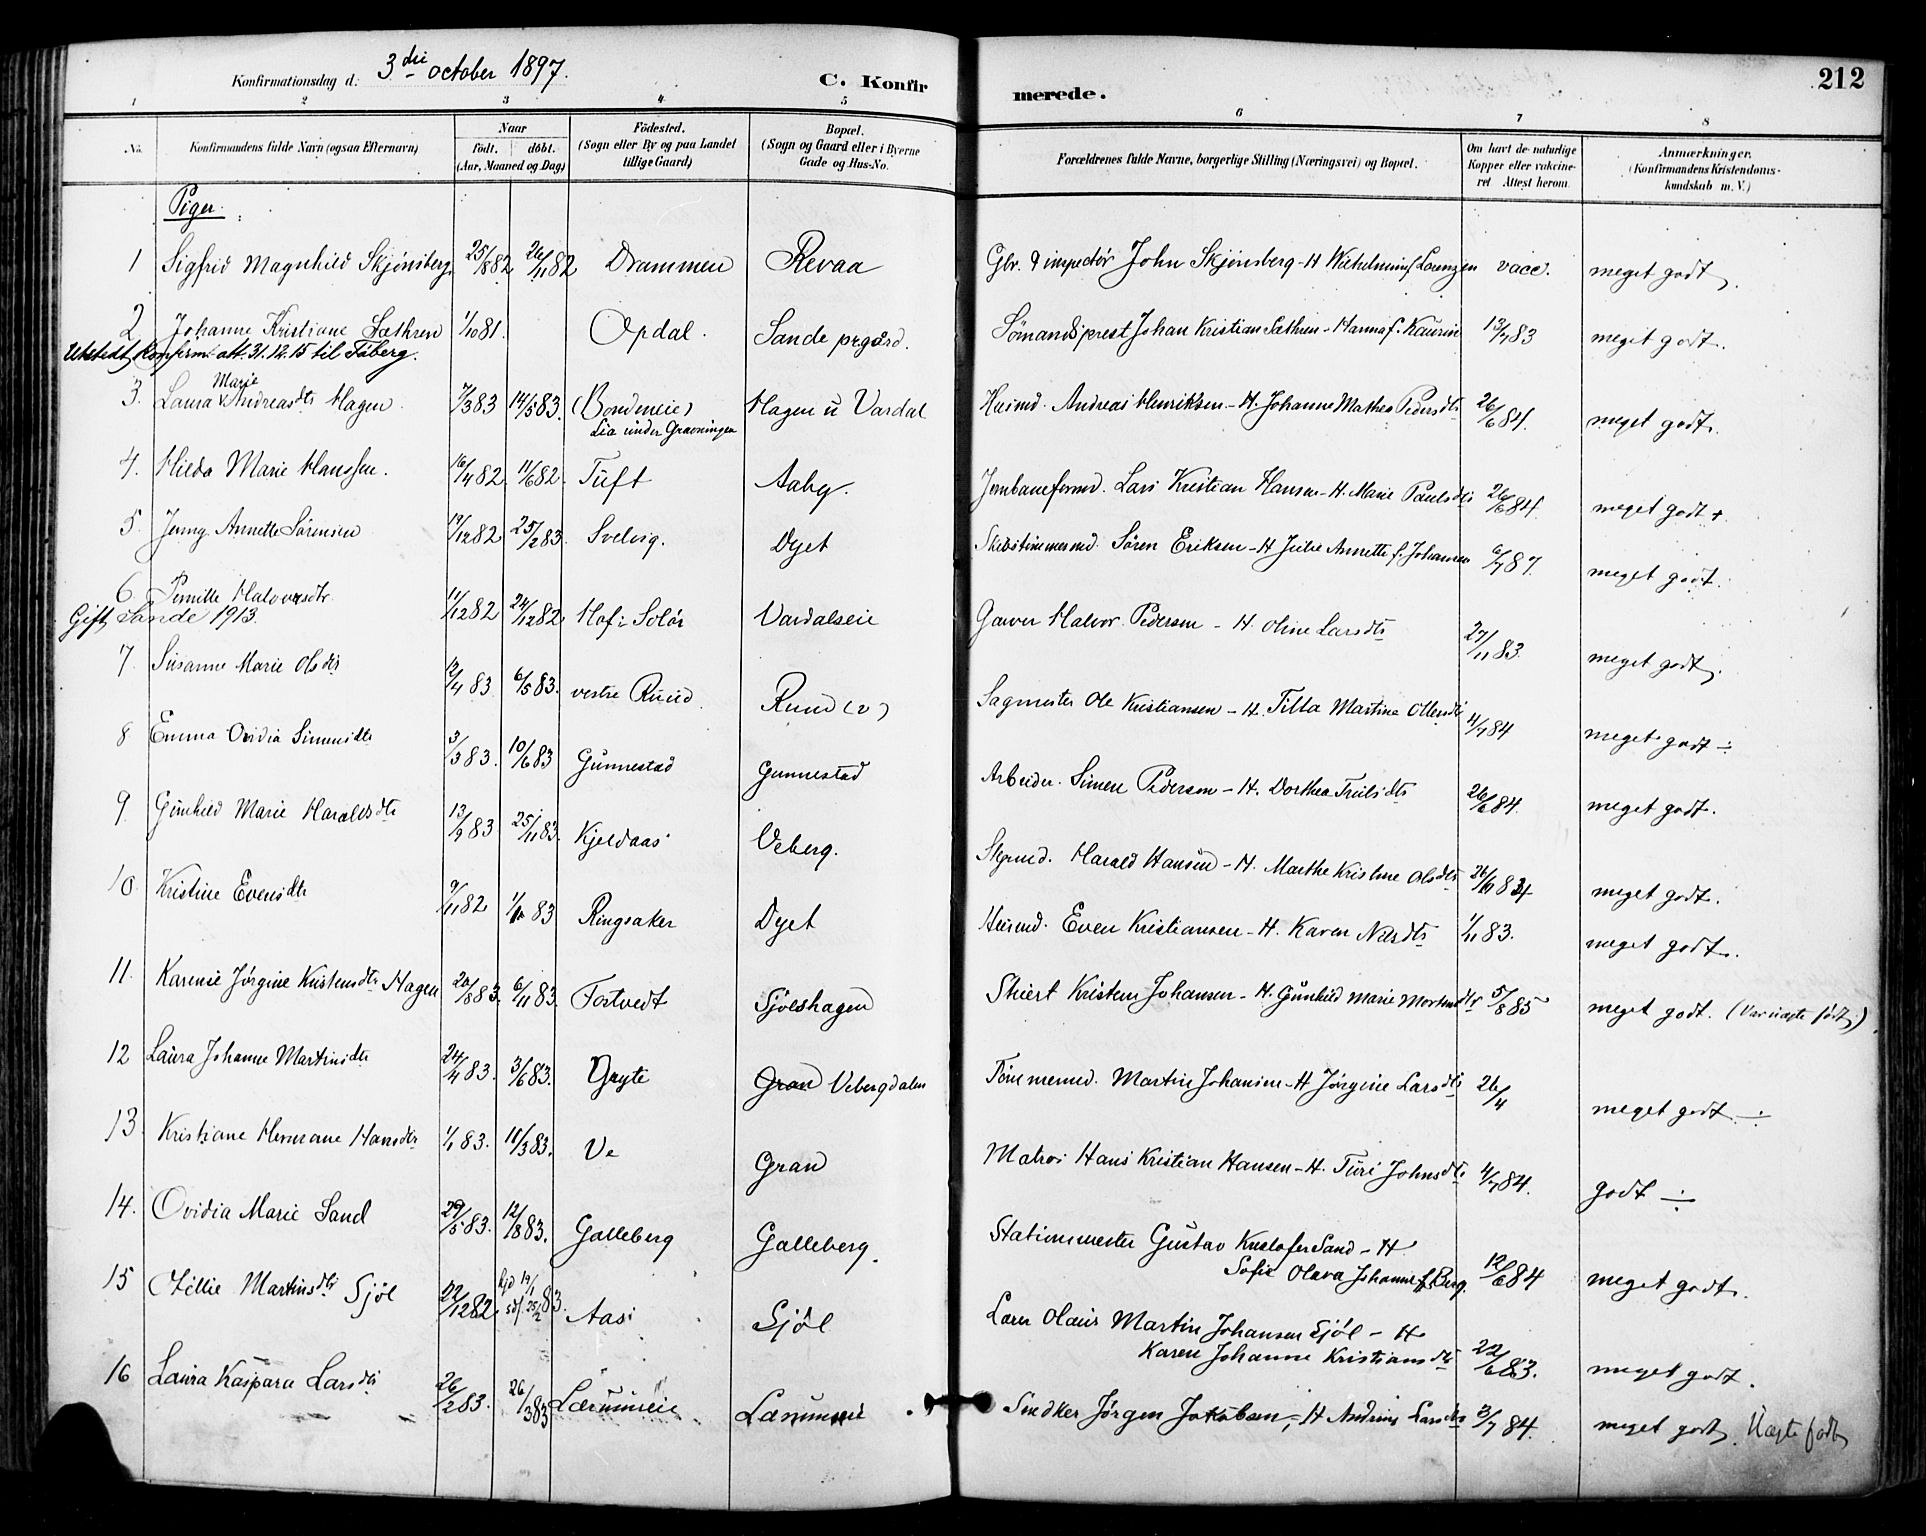 Konfirmationsdag d. 3die october 1897.
C. Konfirmerede.
212
1 2 3 4 5 6 7 8
No.
Konfirmandens fulde Navn (ogsaa Efternavn)
Naar født. døbt. (Aar, Maaned og Dag)
Fødested. (Sogn eller By og paa Landet tillige Gaard)
Bopæl. (Sogn og Gaard eller i Byerne Gade og Hus-No.
Forældrenes fulde Navne, borgerlige Stilling (Næringsvei) og Bopæl.
Om havt de naturlige Kopper eller vakcineret Attest herom.
Anmærkninger. (Konfirmandens Kristendomskundskab m. V.)
Piger.
1 Sigfrid Magnhild Skjønsberg 25/8 82 26/11 82 Drammen Revaa John Skjønsberg - H Wilhelmine f. Lorenzen vacc. meget godt.
2 Johanne Kristiane Sæthren 1/10 81. Opdal. Sande prgård. Sømandsprest Johan Kristian Sæthren - Hanna f. Kaurin 13/7 83 meget godt.
Utstedt Konfirm. att. 31.12.15 til Fåberg.
3. Laura Marie Andreasdtr Hagen. 7/3 83 14/5 83. (Bondeneie) Lia under Gravningen Hagen u Vardal Husmd. Andreas Henriksen - H. Johanne Mathea Pedersdtr 26/6 84. meget godt.
4. Hilda Marie Hanssen. 16/4 82 11/6 82. Tuft Aabg. Jernbaneformd. Lars Kristian Hansen - H. Marie Paulsdtr 26/6 84. meget godt +
5. Jenny Annette Sørensen 19/12 82 25/2 83. Svelvig. Dyet Skibstømmermd. Søren Eriksen - H Julie Annette f. Johansen 6/7 87. meget godt.
6. Pernille Halvorsdtr. 11/12 82 24/12 82 Hof i Solør Vardalseie Garver Halvor Pedersen - H. Oline Larsdtr 27/11 83. meget godt.
Gift Sande 1913.
7. Susanne Marie Olsdtr 12/4 83 6/5 83. vestre Ruud Ruud (v) Sagmester Ole Kristiansen - H. Tilla Martine Olsdtr 4/7 84 meget godt ÷
8 Emma Ovidia Simensdtr 3/3 83. 10/6 83 Gunnestad Gunnestad Arbeider. Simen Pedersen - H. Dorthea Trulsdtr 26/6 84. meget godt.
9. Gunhild Marie Haraldsdtr 13/9 83 25/11 83. Kjeldaas Veberg. Harald Hansen - H. Marthe Kristine Olsdtr 26/6 84 meget godt.
10. Kristine Evensdtr 9/11 82 1/1 83 Ringsaker Dyet Husmd. Even Kristiansen - H. Karen Nilsdtr 1/11 83. meget godt.
11. Karense Jørgine Kristensdtr Hagen 20/8 83. 6/11 83. Fortvedt Sjøleshagen Kristen Johansen - H. Gunhild Marie Mortensdtr 5/8 85 meget godt. (Var uægte født)
12 Laura Johanne Martinsdtr 24/4 83. 3/6 83. Gryte Gran Vebergdalen Tømmermd. Martin Johansen - H Jørgine Larsdtr 26/4 meget godt ÷
13. Kristiane Hermane Hansdtr 1/1 83. 11/3 83. Ve Gran Matros Hans Kristian Hansen - H. Turi Johnsdtr 4/7 84. godt ÷
14. Ovidia Marie Sand 29/5 83. 12/8 83. Galleberg Galleberg. Stationsmester Gustav Kristofer Sand - H
Sofie Olava Johanne f. Berg. 12/6 84 meget godt.
15 Millie Martinsdtr Sjøl 22/12 82. hjd 19/1 83. Aas Sjøl Olaus Martin Johansen Sjøl - H
Karen Johanne Kristiansdtr 22/6 83. meget godt.
16 Laura Kaspara Larsdtr 26/2 83. 26/3 83 Lærumeie Lærumeie Snedker Jørgen Jakobsen, - H Andrine Larsdtr 3/7 84. meget godt. Uægte født